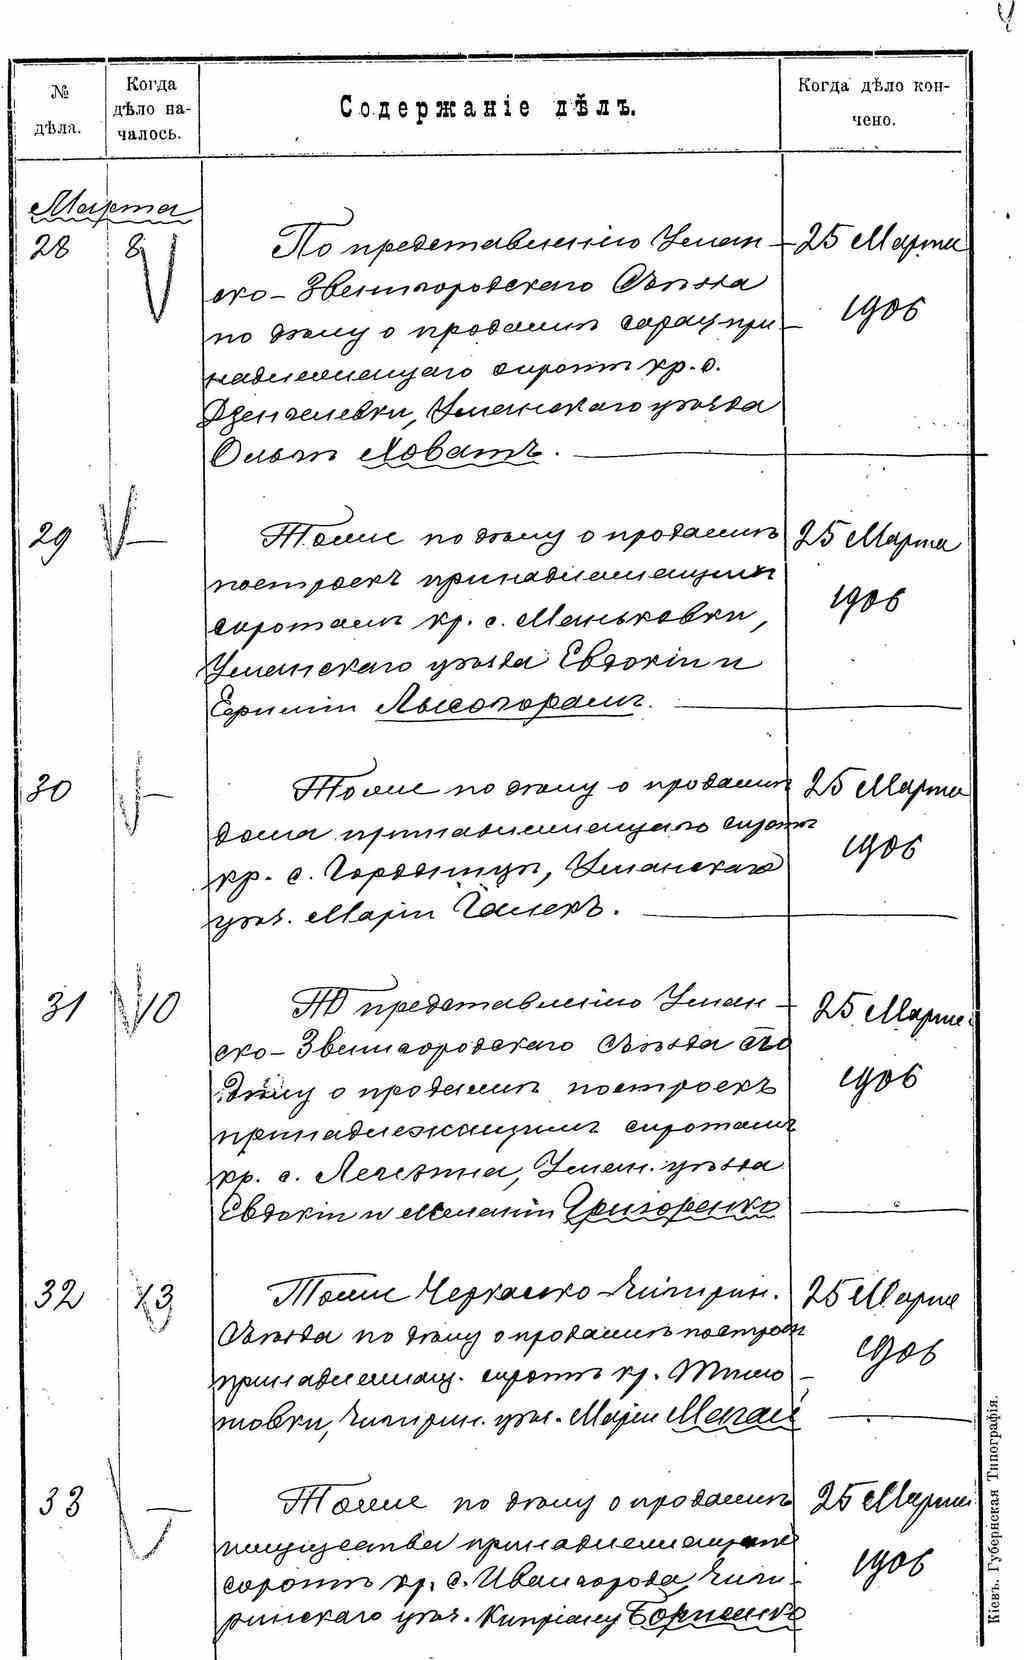 4
№ дѣла.
Когда дѣло на-
чалось.
Содержаніе дѣлъ.
Когда дѣло кон-
чено.
Марта
28 8 По представленію Уман- 25 Марта
ско-Звенигородскаго Съѣзда 1906
по дѣлу о продажѣ сарая при-
надлежащаго сиротѣ кр. с.
Дзенгелевки, Уманскаго уѣзда
Ольгѣ Ховатъ.
29 — Тоже по дѣлу о продажѣ 25 Марта
построекъ принадлежащихъ 1906
сиротамъ кр. с. Маньковки,
Уманскаго уѣзда Евдокіи и
Ефиміи Лысогорамъ.
30 — Тоже по дѣлу о продажѣ 25 Марта
дома принадлежащаго сиротѣ 1906
кр. с. Уманскаго
уѣз. Маріи
31 10 По представленію Уман- 25 Марта
ско-Звенигородскаго Съѣзда по 1906
дѣлу о продажѣ построекъ
принадлежащихъ сиротамъ
кр. с. Легезина, Уман. уѣзда
Евдокіи и Меланіи Григоренко
32 13 Тоже Черкасско-Чигирин. 25 Марта
Съѣзда по дѣлу о продажѣ построекъ 1906
принадлежащ. сиротѣ кр.
Чигирин. уѣз. Маріи
33 — Тоже по дѣлу о продажѣ 25 Марта
имущества принадлежащаго 1906
сиротѣ кр. с. Ивангорода, Чиги-
ринскаго уѣз. Кипріану Борисенко
Кіевъ. Губернская Типографія.